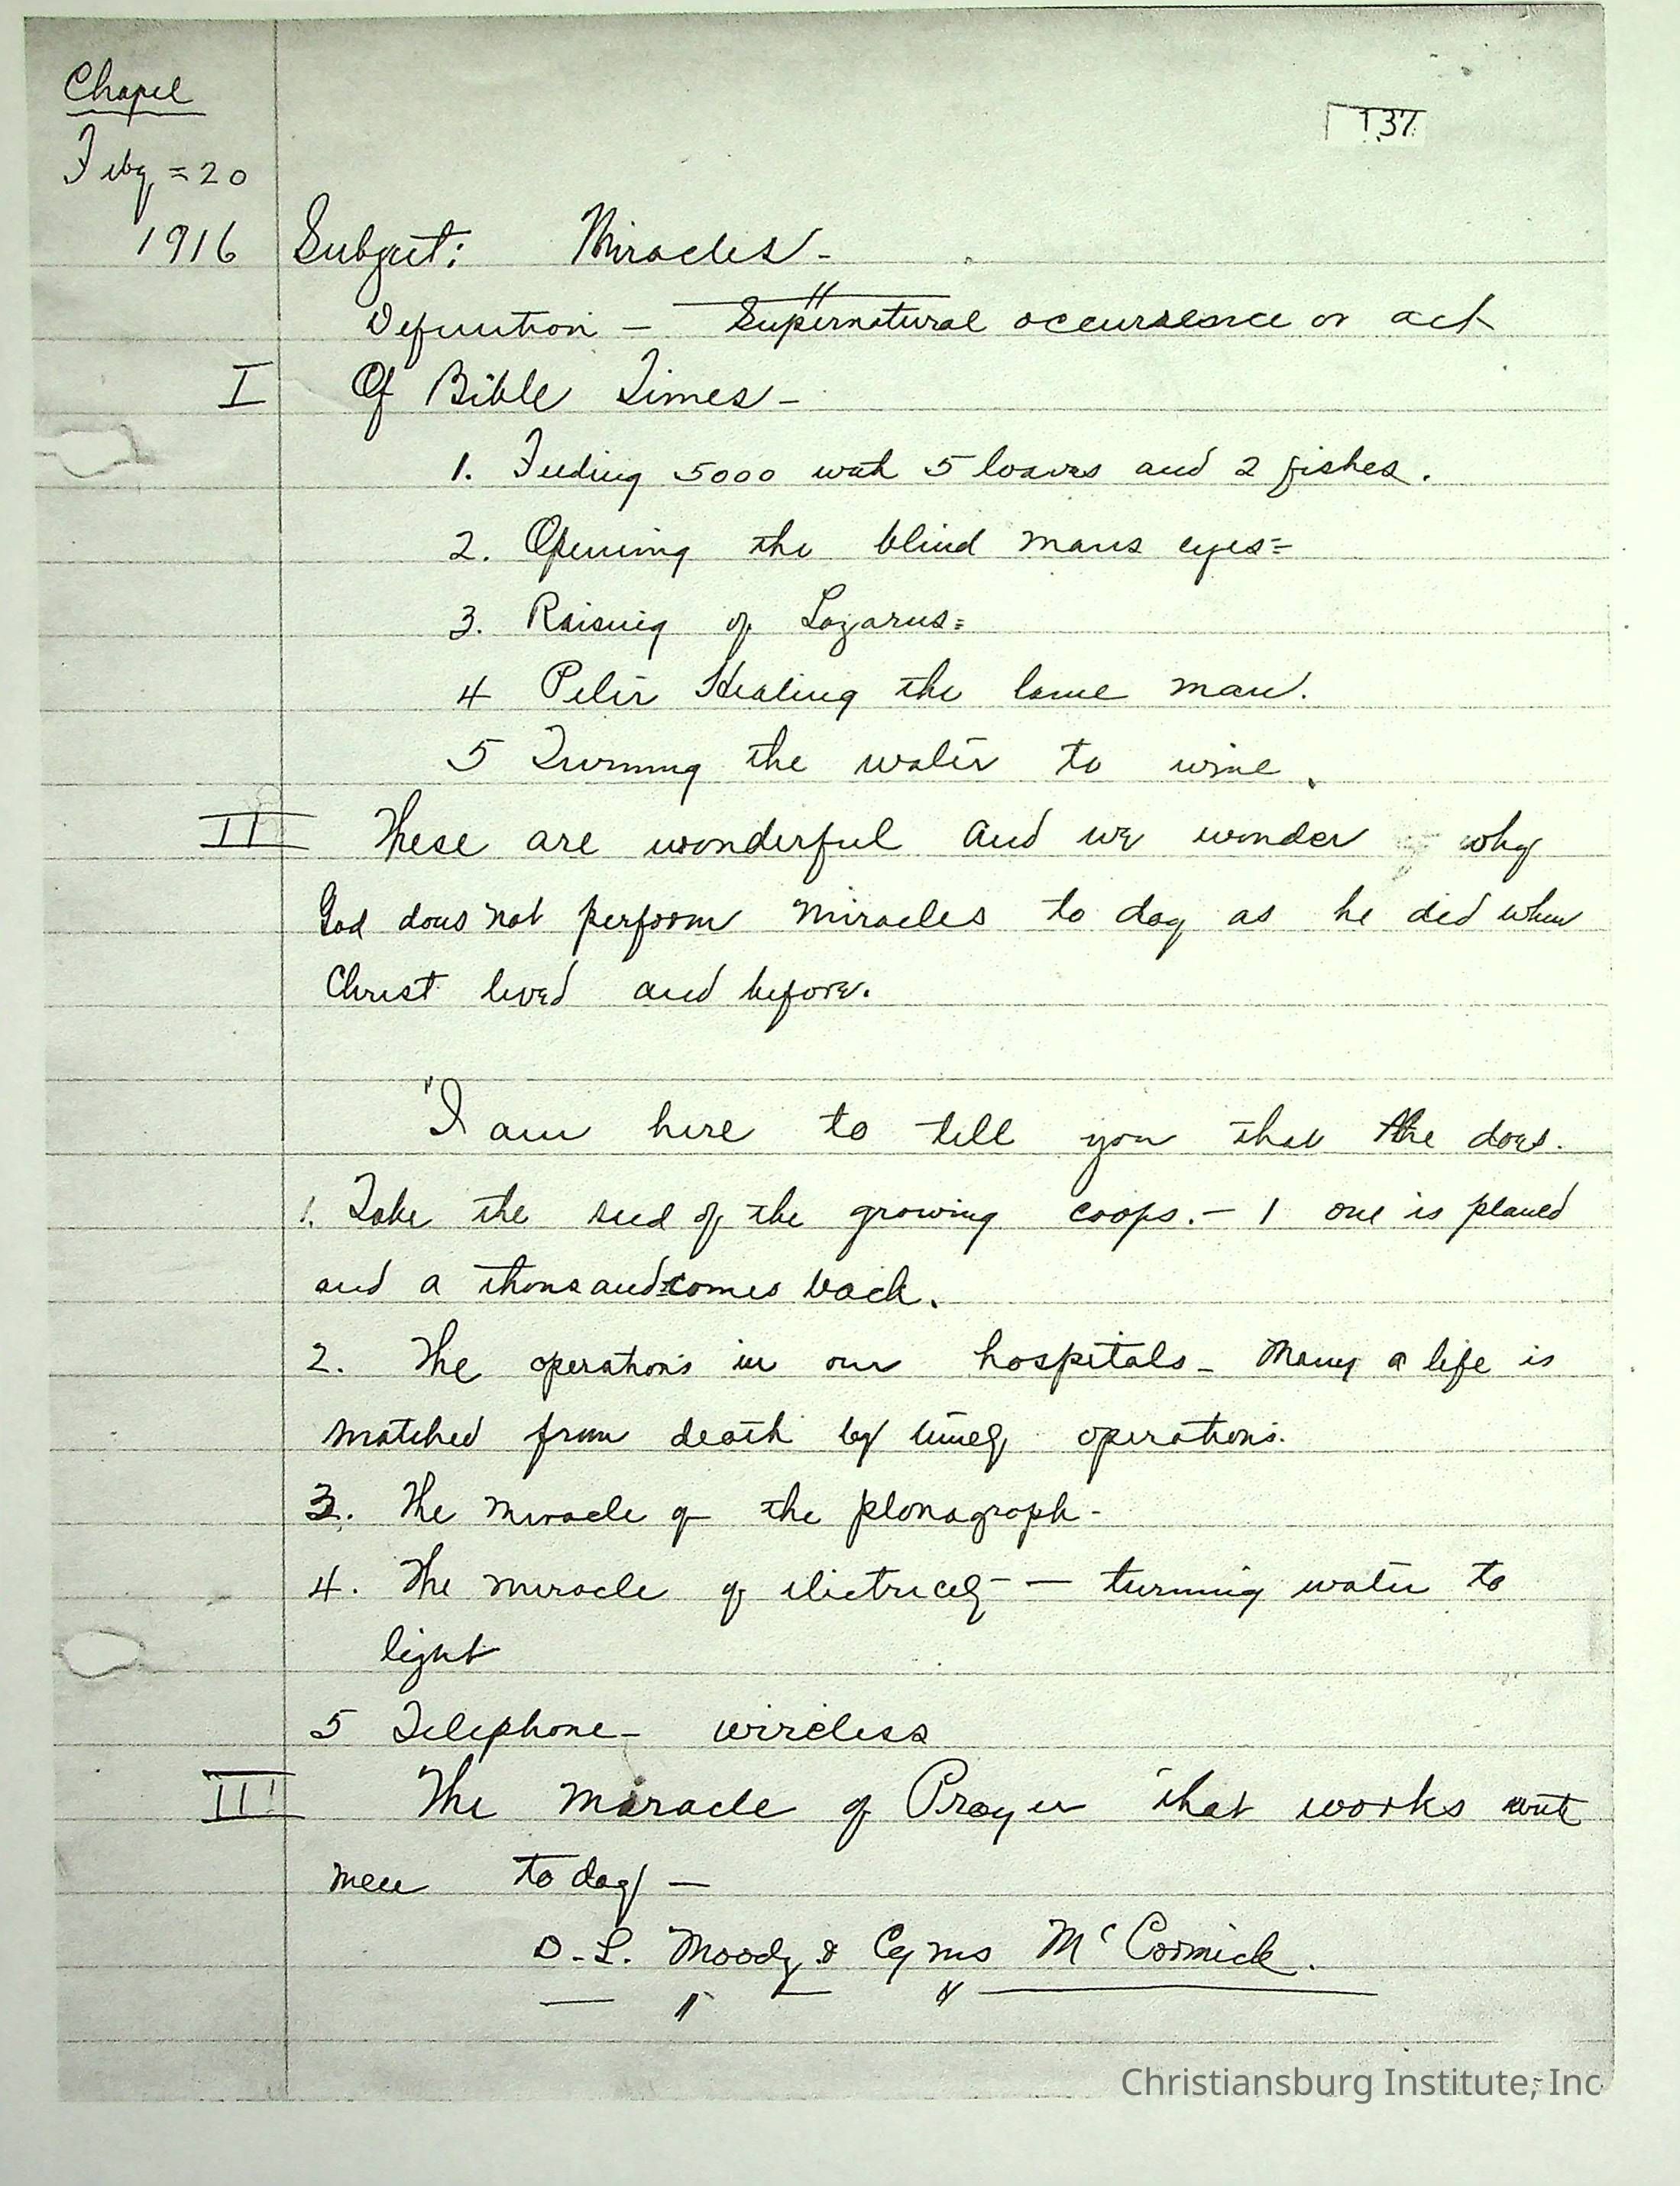 Chapel
137
Feby = 20
1916 Subject: Miracles -
Definition - Supernatural occurrence or act
I Of Bible Times -
1. Feeding 5000 with 5 loaves and 2 fishes.
2. Opening the blind mans eyes=
3. Raising of Lazarus=
4 Peter Healing the lame man.
5 Turning the water to wine.
II These are wonderful and we wonder why
God does not perform miracles to day as he did when
Christ lived and before.
"I am here to tell you that he does.
1. Take the seed of the growing crops. - 1 one is planed
and a thousand comes back.
2. The operations in our hospitals - Many a life is
snatched from death by timely operations.
3. The miracle of the phonagraph -
4. The miracle of electricity - turning water to
light
5 Telephone - wireless
III The Miracle of Prayer that works with
men to day -
D. L. Moody & Cyrus McCormick.
Christiansburg Institute, Inc